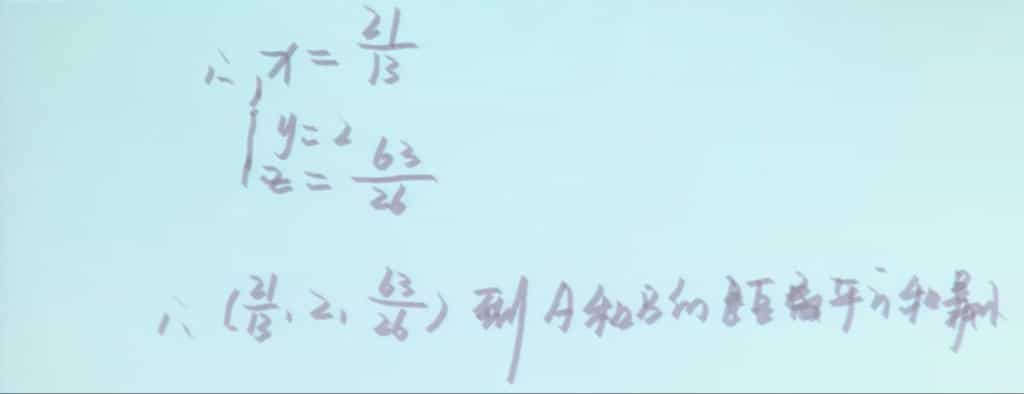 ∴ { x = 21/13
y = 2
z = 63/26
∴ (21/13, 2, 63/26) 到A和B的距离平方和最小